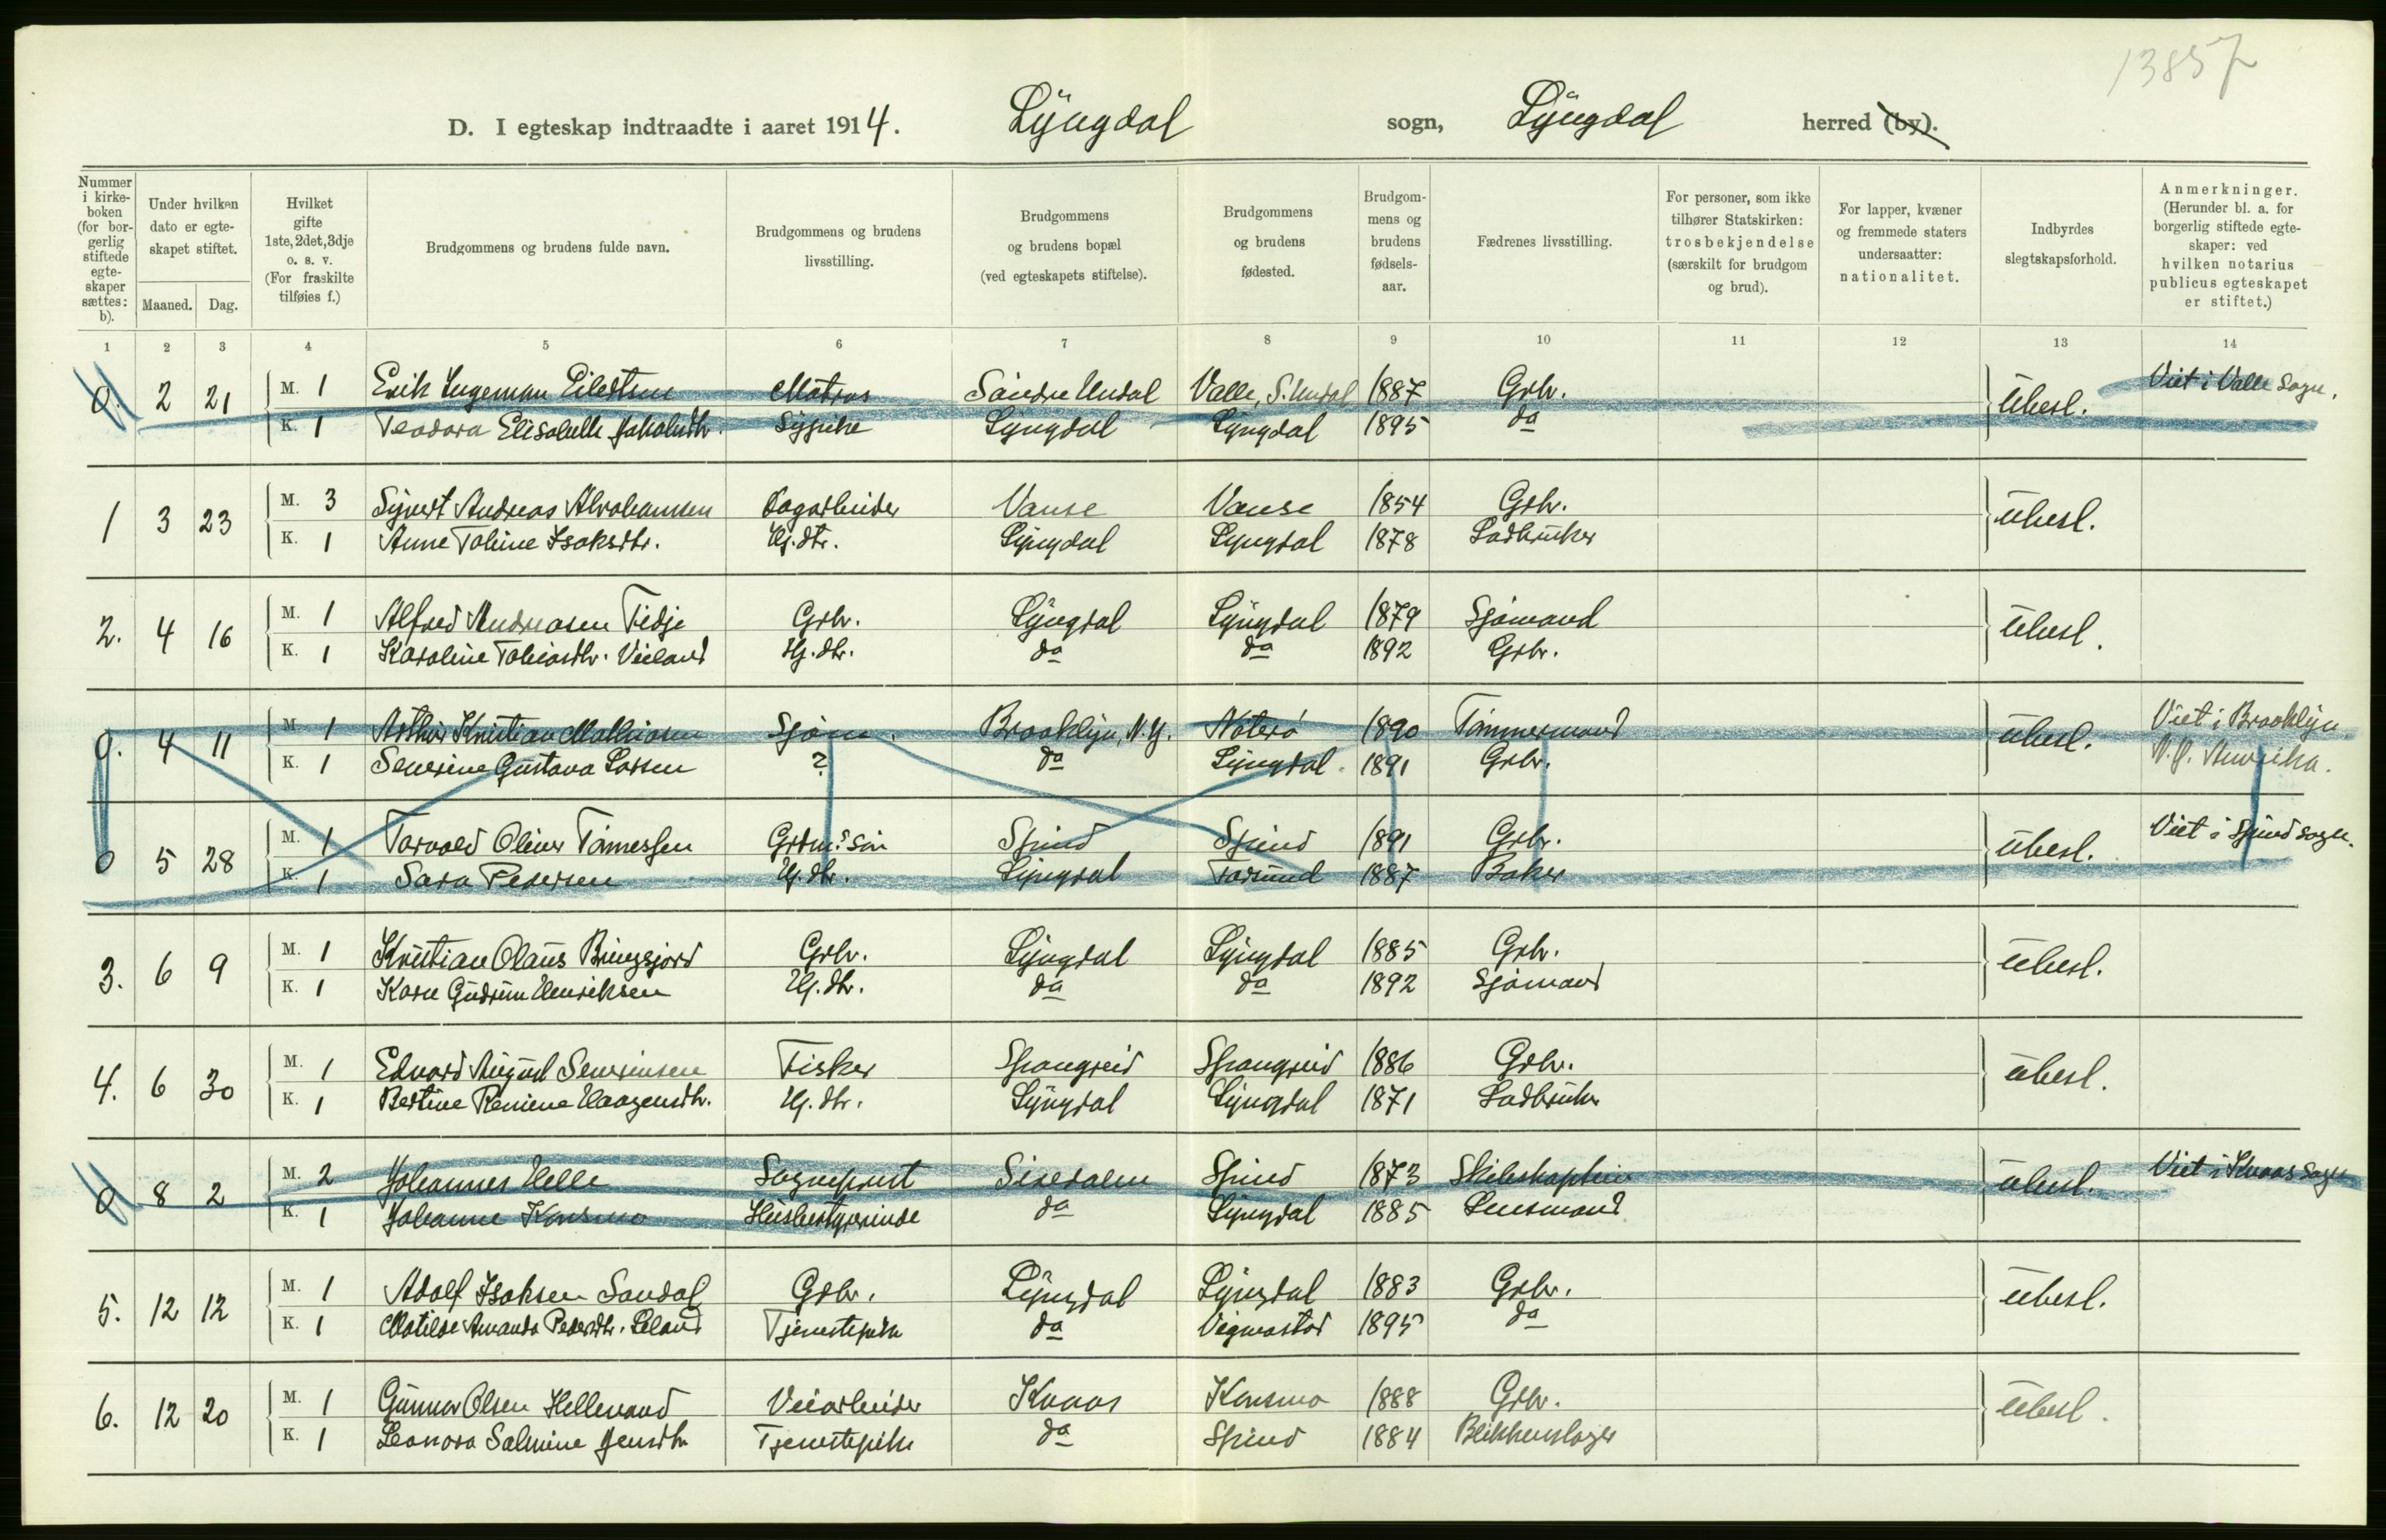 13857
D. I egteskap indtraadte i aaret 1914. Lyngdal sogn, Lyngdal herred (by).
Nummer i kirkeboken (for borgerlig stiftede egteskaper sættes: b).
Under hvilken dato er egteskapet stiftet.
Maaned. Dag.
Hvilket gifte 1ste, 2det, 3dje o. s. v. (For fraskilte tilføies f.)
Brudgommens og brudens fulde navn.
Brudgommens og brudens livsstilling.
Brudgommens og brudens bopæl (ved egteskapets stiftelse).
Brudgommens og brudens fødested.
Brudgommens og brudens fødselsaar.
Fædrenes livsstilling.
For personer, som ikke tilhører Statskirken: trosbekjendelse (særskilt for brudgom og brud).
For lapper, kvæner og fremmede staters undersaatter: nationalitet.
Indbyrdes slegtskapsforhold.
Anmerkninger. (Herunder bl. a. for borgerlig stiftede egteskaper: ved hvilken notarius publicus egteskapet er stiftet.)
1 2 3 4 5 6 7 8 9 10 11 12 13 14
0. 2 21 M. 1 Erik Ingeman Eilertsen Matros Søndre Undal Valle, S. Undal 1887 Grbr. Ubesl. Viet i Valle Sogn.
K. 1 Teodora Elisabeth Jakobsdtr. Sypike Lyngdal Lyngdal 1895 do
1 3 23 M. 3 Sÿvert Andreas Abrahamsen Dagarbeider Vanse Vanse 1854 Grbr. Ubesl.
K. 1 Anne Tobine Isaksdtr. Hj. dtr. Lyngdal Lyngdal 1878 Ladbruker
2. 4 16 M. 1 Alfred Andreasen Tidje Grbr. Lyngdal Lyngdal 1879 Sjømand Ubesl.
K. 1 Karoline Tobiasdtr. Veiland Hj. dtr. do do 1892 Grbr.
0. 4 11 M. 1 Arthur Kristian Mathiasen Sjøm. Brooklyn, N.Y. Nøterø 1890 Tømmermand Ubesl. Viet i Brooklyn
K. 1 Severine Gustava Larsen ? do Lyngdal 1891 Grbr. N.Y. Amerika.
0 5 28 M. 1 Torvald Oliver Tønnessen Grdm. søn Spind Spind 1891 Grbr. Ubesl. Viet i Spind sogn.
K. 1 Sara Pedersen Hj. dtr. Lyngdal Farsund 1887 Baker
3. 6 9 M. 1 Kristian Olaus Bringsjord Grbr. Lyngdal Lyngdal 1885 Grbr. Ubesl.
K. 1 Karen Gudrun Henriksen Hj. dtr. do do 1892 Sjømand
4. 6 30 M. 1 Edvard August Severinsen Fisker Spangreid Spangreid 1886 Grbr. Ubesl.
K. 1 Bertine Renine Haagensdtr. Hj. dtr. Lyngdal Lyngdal 1871 Ladbruker
0 8 2 M. 2 Johannes Helle Sogneprest Siredalen Spind 1873 Skibskaptein Ubesl. Viet i Kvaas Sogn
K. 1 Johanne Konsmo Husbestyrerinde do Lyngdal 1885 Lensmand
5. 12 12 M. 1 Adolf Isaksen Sandal Grbr. Lyngdal Lyngdal 1883 Grbr. Ubesl.
K. 1 Matilde Amanda Pedersdtr. Leland Tjenestepike do Vigmostad 1895 do
6. 12 20 M. 1 Gunnar Olsen Hellevand Veiarbeider Kvaas Konsmo 1888 Grbr. Ubesl.
K. 1 Leonora Salmine Jensdtr Tjenestepike do Spind 1884 Blikkenslager